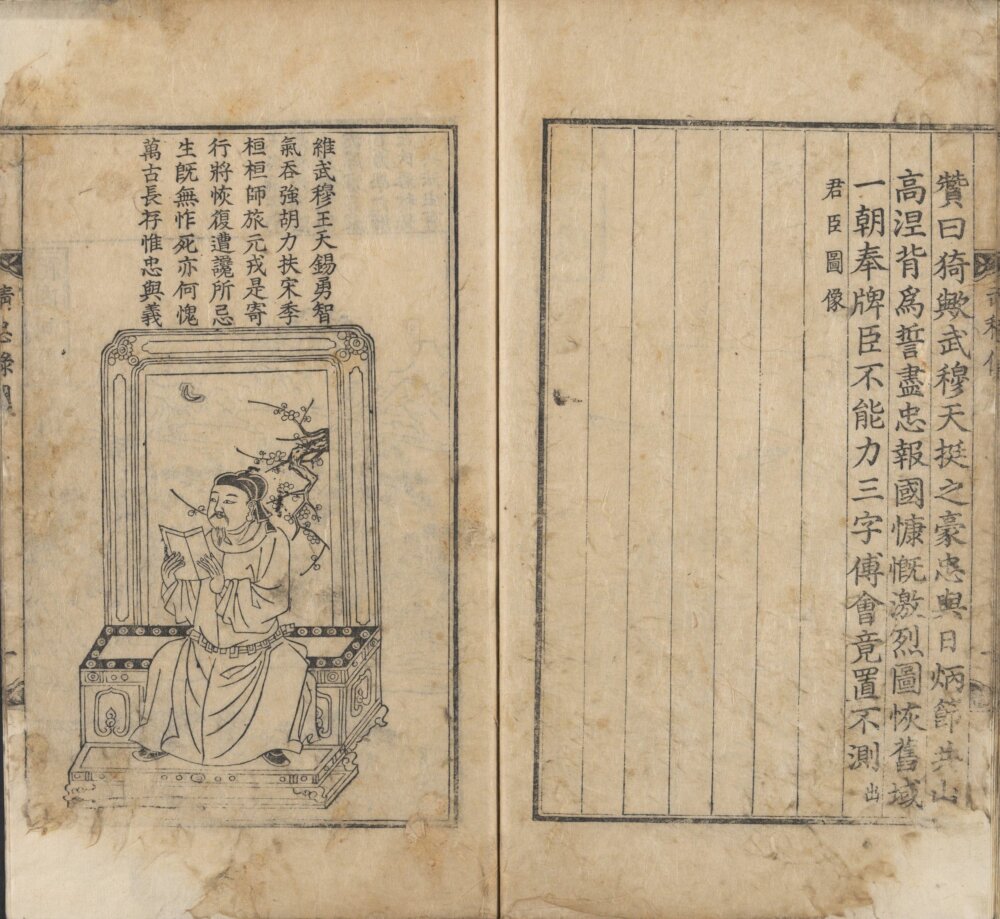 贊曰猗歟武穆天挺之豪忠與日炳節共山
高涅背爲誓盡忠報國慷慨激烈圖恢舊域
一朝奉牌臣不能力三字傅會竟置不測出
君臣圖像
維武穆王天錫勇智
氣吞強胡力扶宋季
桓桓師旅元戎是寄
行將恢復遭讒所忌
生旣無怍死亦何愧
萬古長存惟忠與義